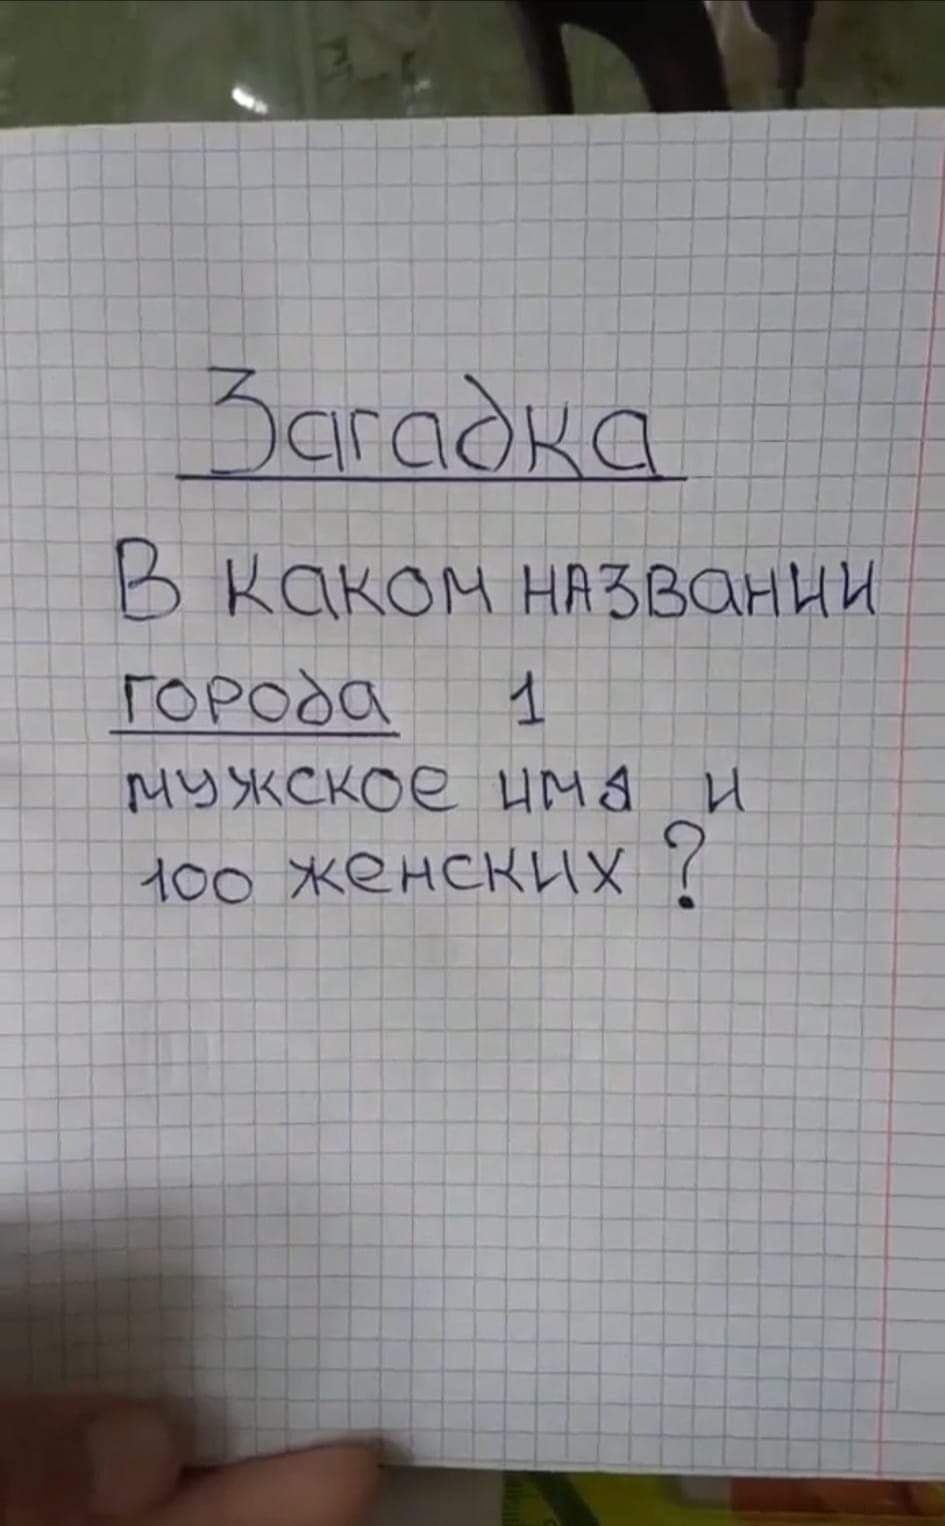 Загадка
В каком названии
города 1
мужское имя и
100 женских?